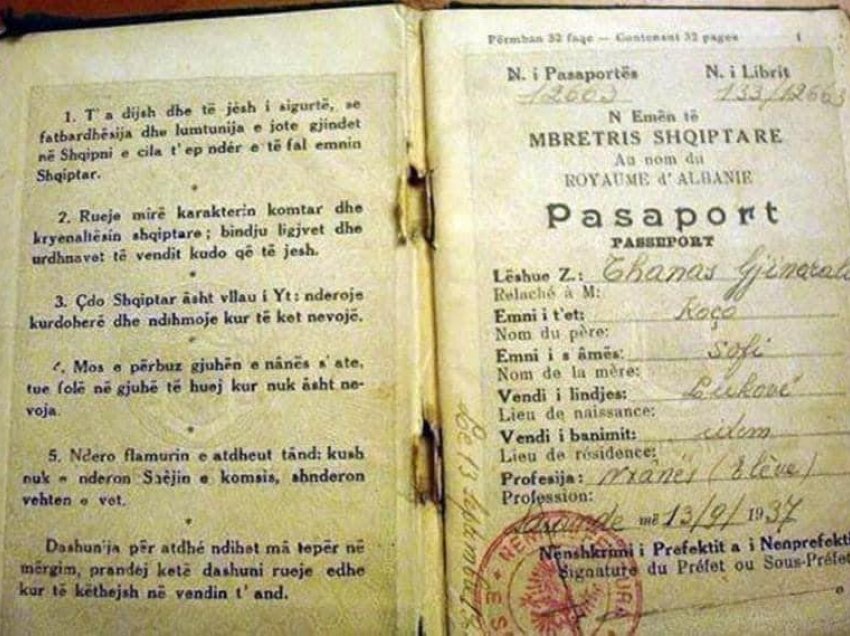 1. T'a dijsh dhe të jesh i sigurtë, se
fatbardhësija dhe lumtunija e jote gjindet
në Shqipni e cila t'ep ndër e të fal emnin
Shqiptar.
*
2. Rueje mirë karakterin komtar dhe
kryenaltësin shqiptare; bindju ligjvet dhe
urdhnavet të vendit kudo që të jesh.
*
3. Çdo Shqiptar âsht vllau i Yt: nderoje
kurdoherë dhe ndihmoje kur të ket nevojë.
*
Mos e përbuz gjuhën e nânës s'ate,
tue folë në gjuhë të huej kur nuk âsht ne-
voja.
*
5. Ndero flamurin e atdheut tând: kush
nuk e nderon e komsis, shnderon
vehten e vet.
*
Dashun'ja për atdhé ndihet mâ tepër në
mërgim, prandej ketë dashuni rueje edhe
kur të këthejsh në vendin t'and.
Përmban 32 faqe — Contenant 32 pages 1
N. i Pasaportës N. i Librit
12663 133/12663
N Emën të
MBRETRIS SHQIPTARE
Au nom du
ROYAUME d'ALBANIE
Pasaport
PASSEPORT
Lëshue Z.: Thanas
Relaché à M:
Emni i t'et: Koço
Nom du père:
Emni i s âmës: Sofi
Nom de la mère:
Vendi i lindjes: Lukovë
Lieu de naissance:
Vendi i banimit: idem
Lieu de résidence:
Profesija: nxânës (Elève)
Profession:
Sarandë më 13/9/1937
Nënshkrimi i Prefektit a i Nenprefekti
Signature du Préfet ou Sous-Préfet
Le 13